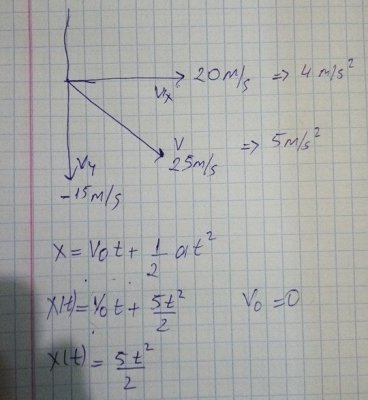 20m/s => 4 m/s²
Vx
V => 5m/s²
25m/s
Vy
-15m/s
x = V₀t + 1/2 at²
x(t) = V₀t + 5t²/2 V₀ = 0
x(t) = 5t²/2